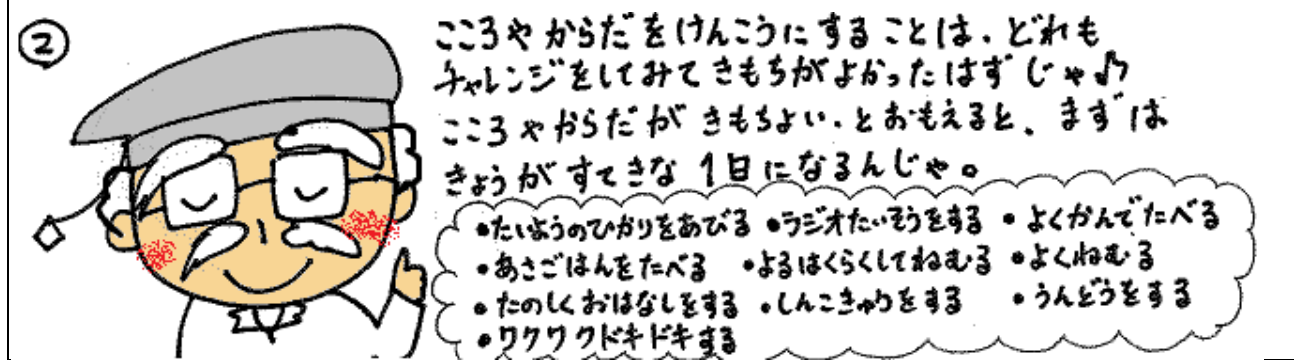 ②
こころや からだ を けんこうに する ことは、どれも
チャレンジをしてみて きもちが よかった はず じゃ♪
こころ や からだ が きもちよい、と おもえると、まず は
きょう が すてきな 1日 に なるんじゃ。
•たいようのひかりをあびる •ラジオたいそうをする •よくかんでたべる
•あさごはんをたべる •よるはくらくしてねむる •よくねむる
•たのしくおはなしをする •しんこきゅうをする •うんどうをする
•ワクワクドキドキする